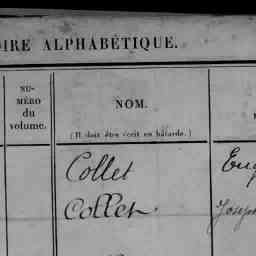 OIRE ALPHABÉTIQUE.
NU-
MÉRO
du
volume.
NOM.
(Il doit être écrit en bâtarde.)
Collet
Collet